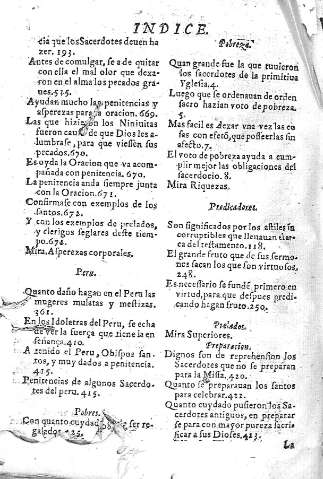 INDICE.
cia que los Sacerdotes deuen ha
zer. 193.
Antes de comulgar, se à de quitar
con ella el mal olor que dexa-
ron en el alma los pecados gra-
ues. 515.
Ayudan mucho las penitencias y
asperezas para la oracion. 669.
Las que hizieron los Niniuitas
fueron causa de que Dios les a-
lumbrase, para que viessen sus
pecados. 670.
Es oyda la Oracion que va acom-
pañada con penitencia. 670.
La penitencia anda siempre junta
con la Oracion. 671.
Confirmase con exemplos de los
santos. 672.
Y con los exemplos de prelados,
y clerigos seglares deste tiem-
po. 674.
Mira. Asperezas corporales.
Peru.
Quanto daño hagan en el Peru las
mugeres mulatas y mestizas.
361.
En los Idolatras del Peru, se echa
de ver la fuerça que tiene la en
señança. 410.
A tenido el Peru, Obispos san-
tos, y muy dados a penitencia.
415.
Penitencias de algunos Sacerdo-
tes del peru. 415.
Pobres.
Con quanto cuydado de ser re-
galados
Pobreza.
Quan grande fue la que tuuieron
los sacerdotes de la primitiua
Yglesia. 4.
Luego que se ordenauan de orden
sacro hazian voto de pobreza.
5.
Mas facil es dexar vna vez las co
sas con efeto, que posseerlas sin
afecto. 7.
El voto de pobreza ayuda a cum-
plir mejor las obligaciones del
sacerdocio. 8.
Mira Riquezas.
Predicadores.
Son significados por los astiles in
corruptibles que lleuauan el arca
del testamento. 118.
El grande fruto que de sus fermo-
nes sacan los que son virtuosos,
248.
Es necessario se funde primero en
virtud, para que despues predi-
cando hagan fruto. 250.
Prelados.
Mira Superiores.
Preparacion.
Dignos son de reprehension los
Sacerdotes que no se preparan
para la Missa. 420.
Quanto se preparauan los santos
para celebrar. 422.
Quanto cuydado pusieron los Sa-
cerdotes antiguos, en preparar
se para con mayor pureza sacri-
ficar a sus Dioses. 423.
La